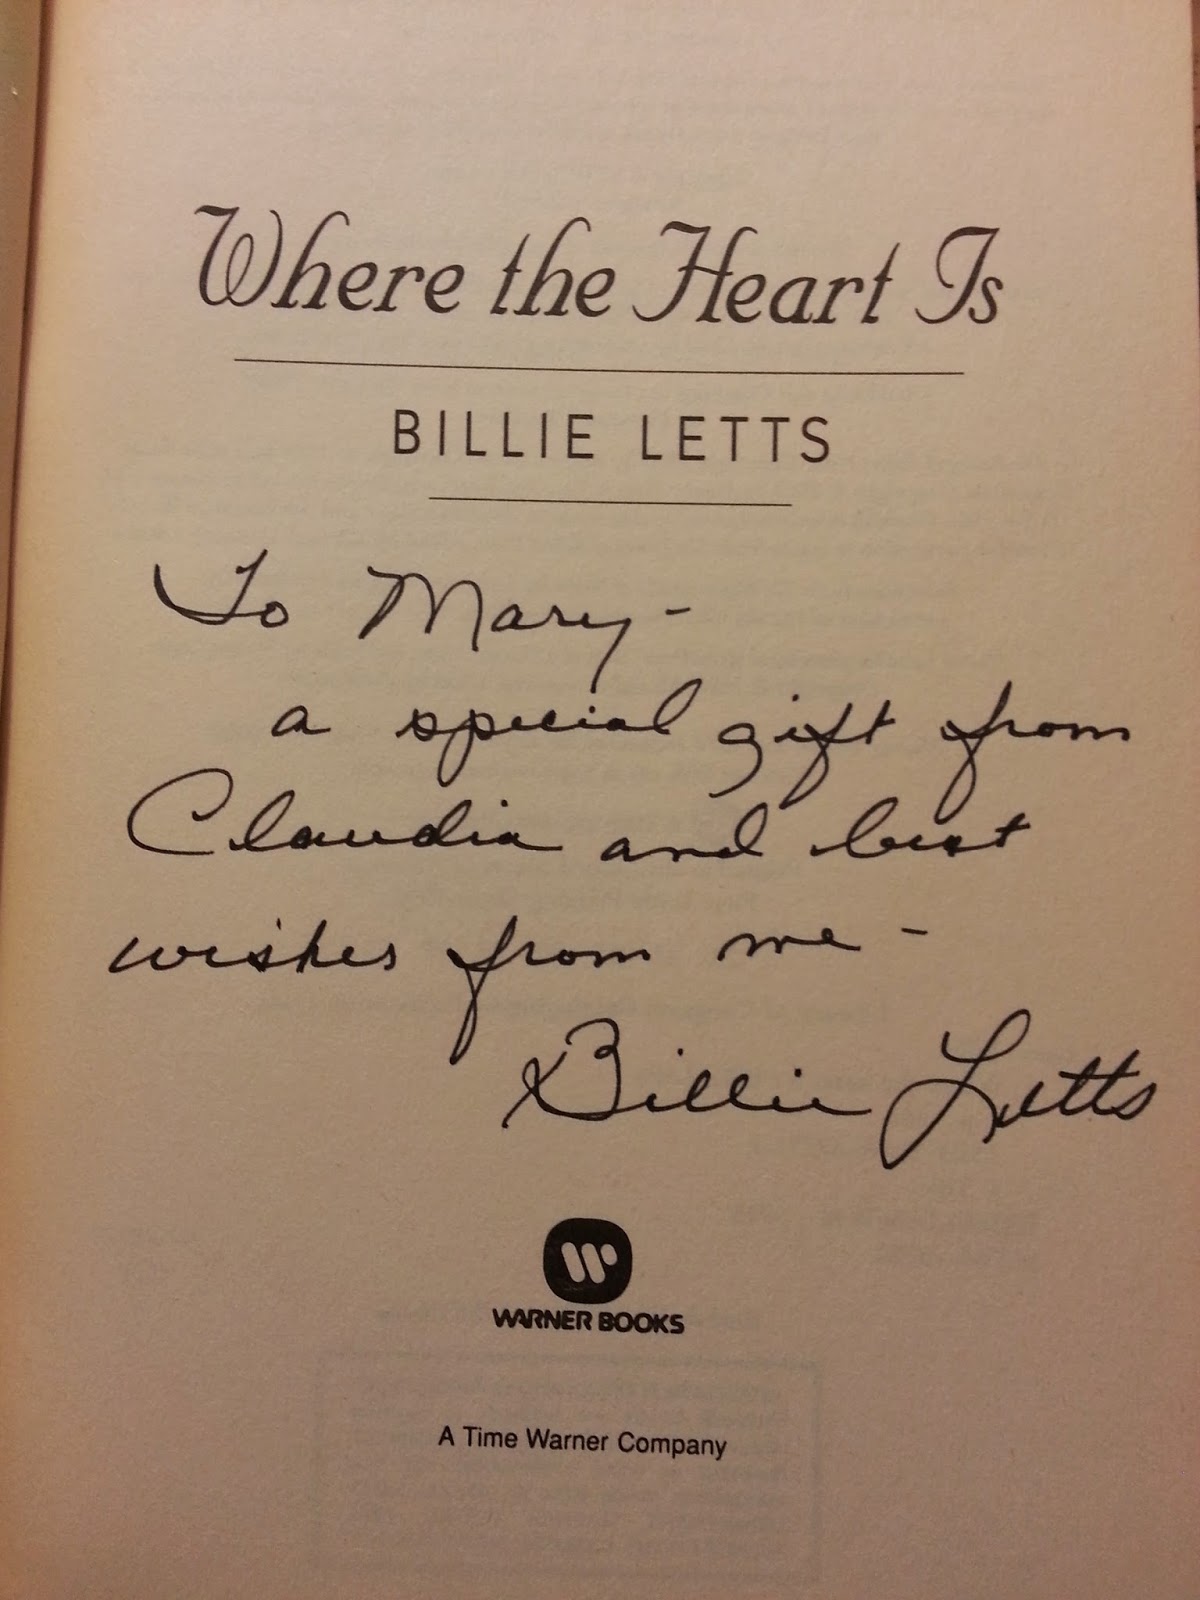 Where the Heart Is
BILLIE LETTS
To Mary-
a special gift from
Claudia and best
wishes from me -
Billie Letts
WARNER BOOKS
A Time Warner Company